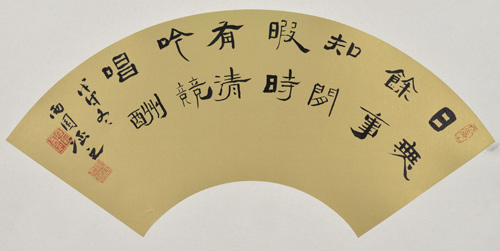 日無
餘事
知閒
暇時
有清
吟競
唱酬